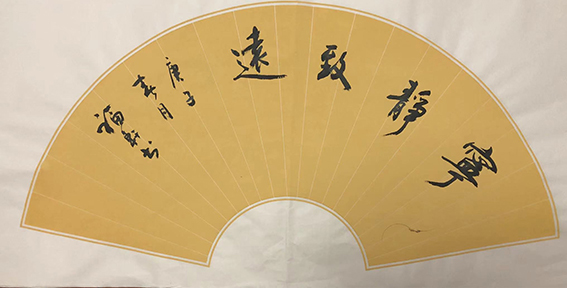 寧靜致遠
庚子
春月
福軒书